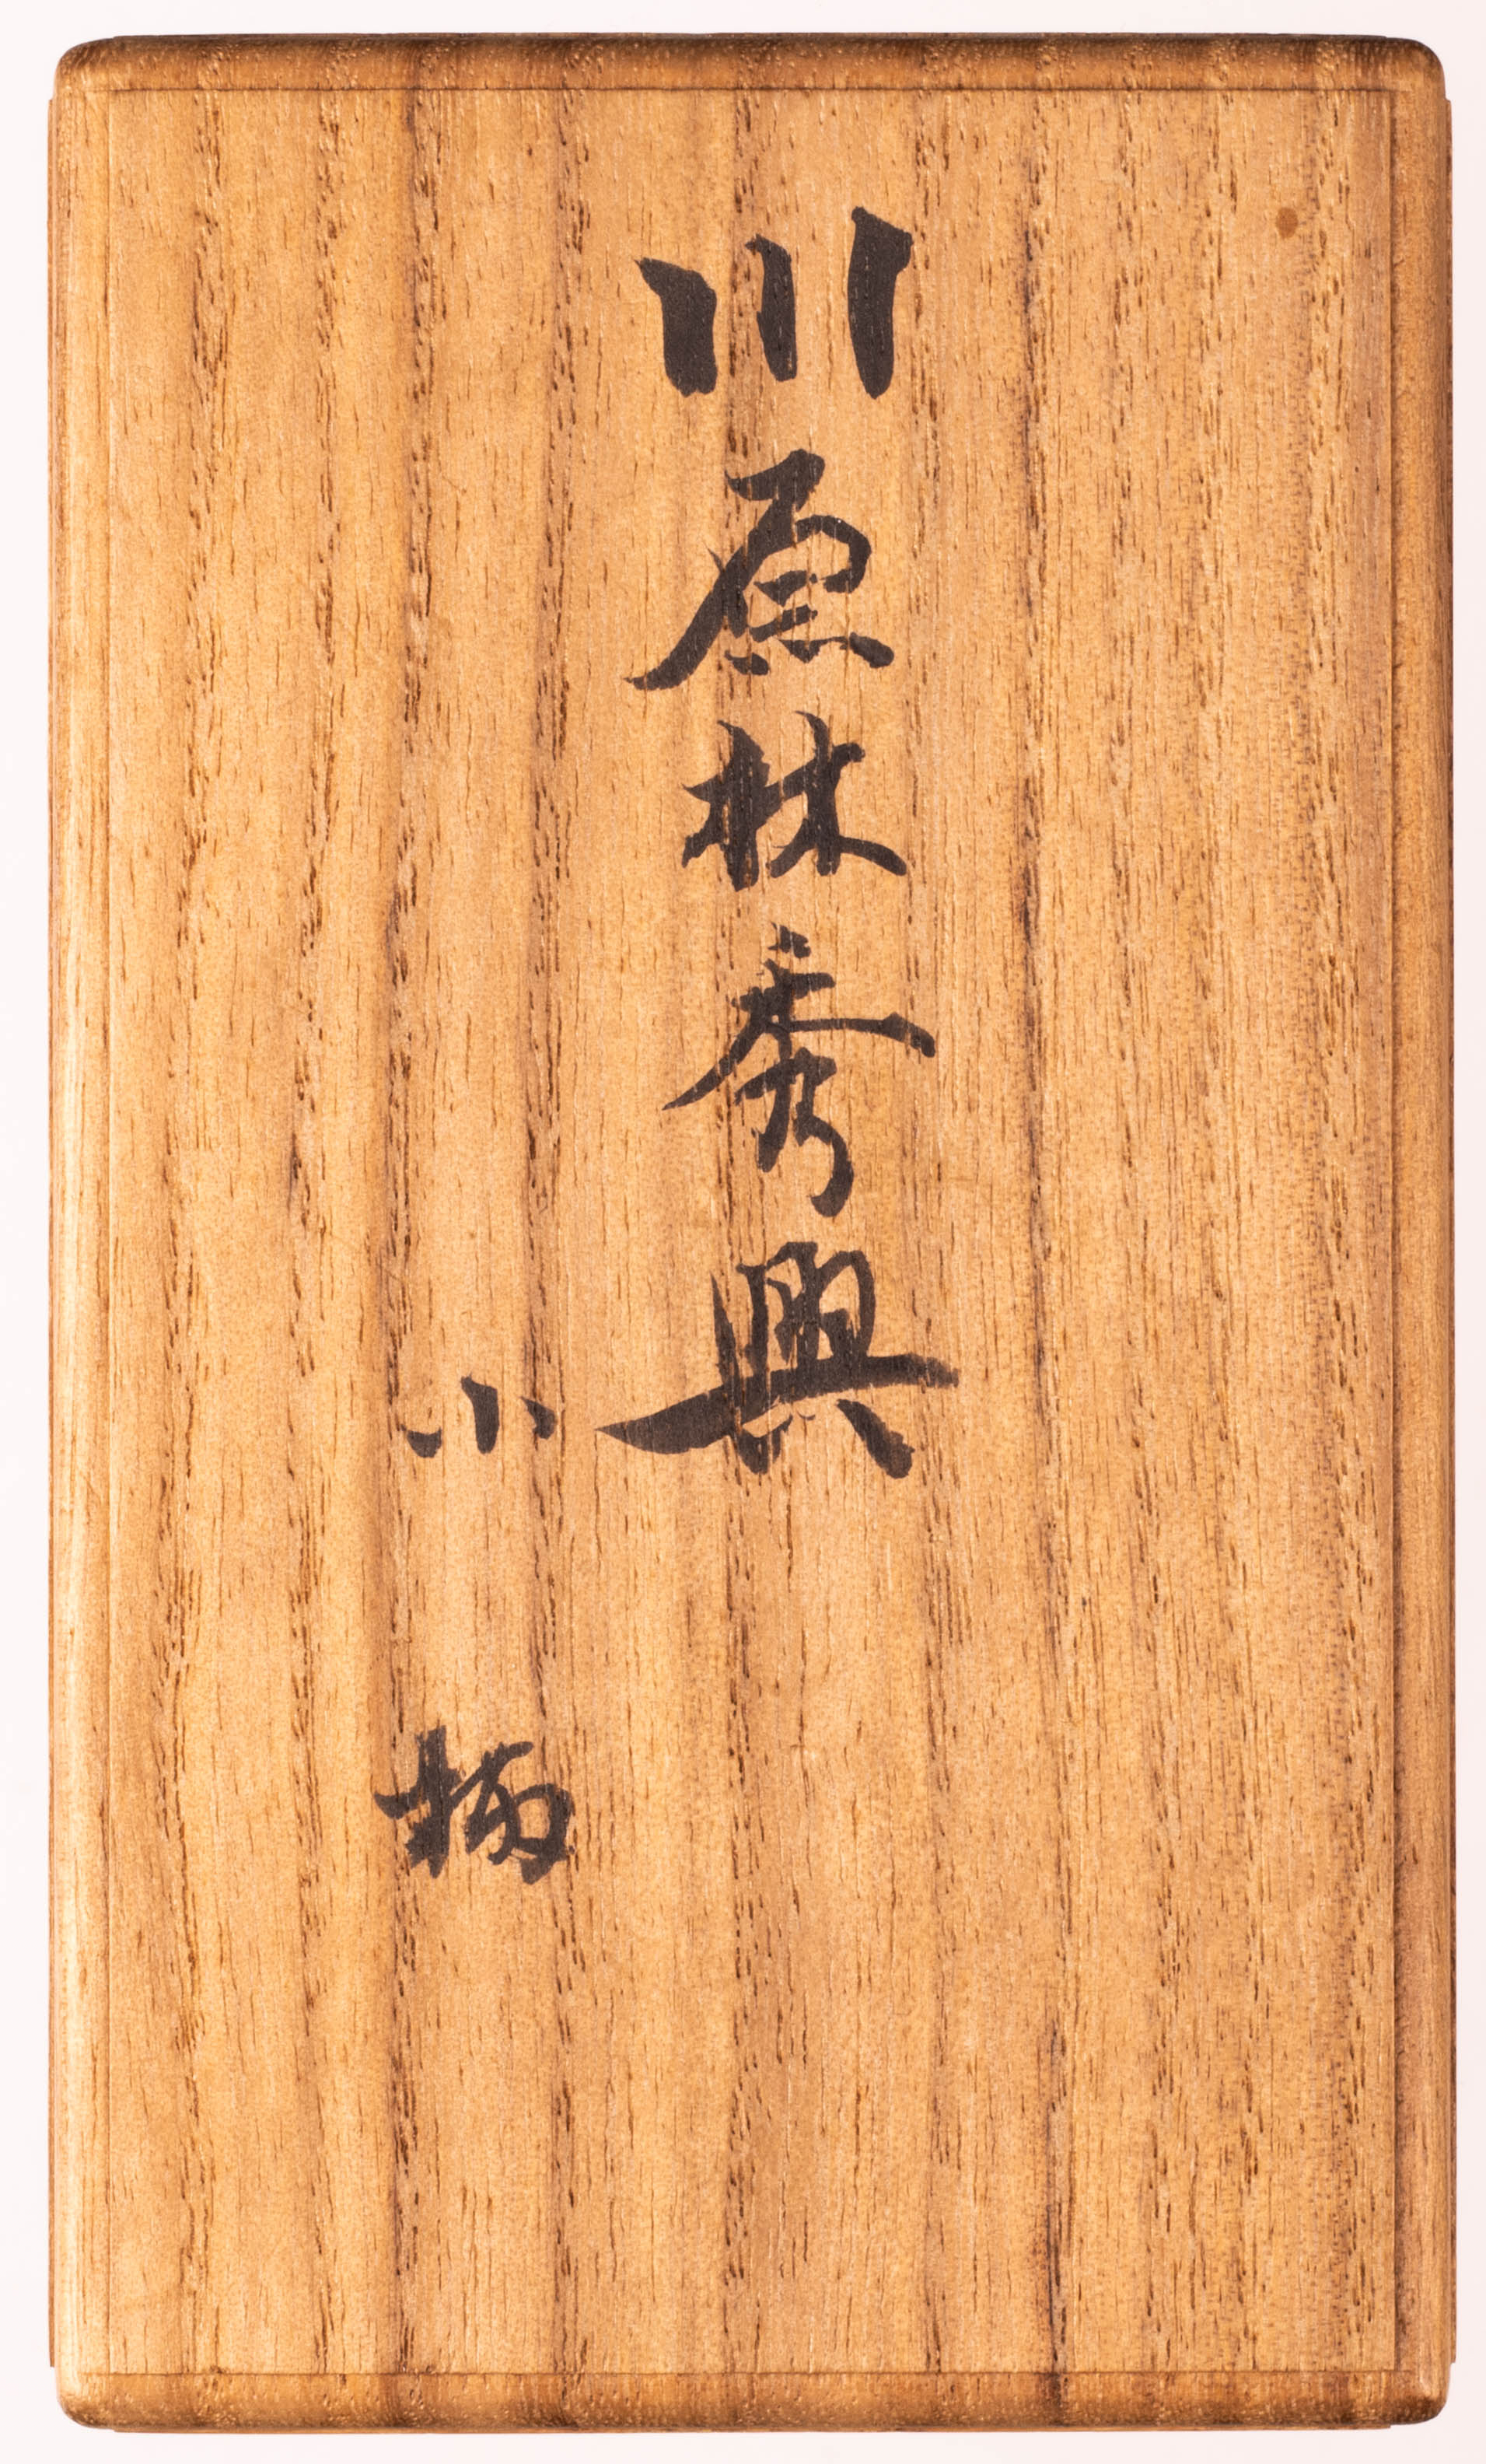 川原林秀興
小柄